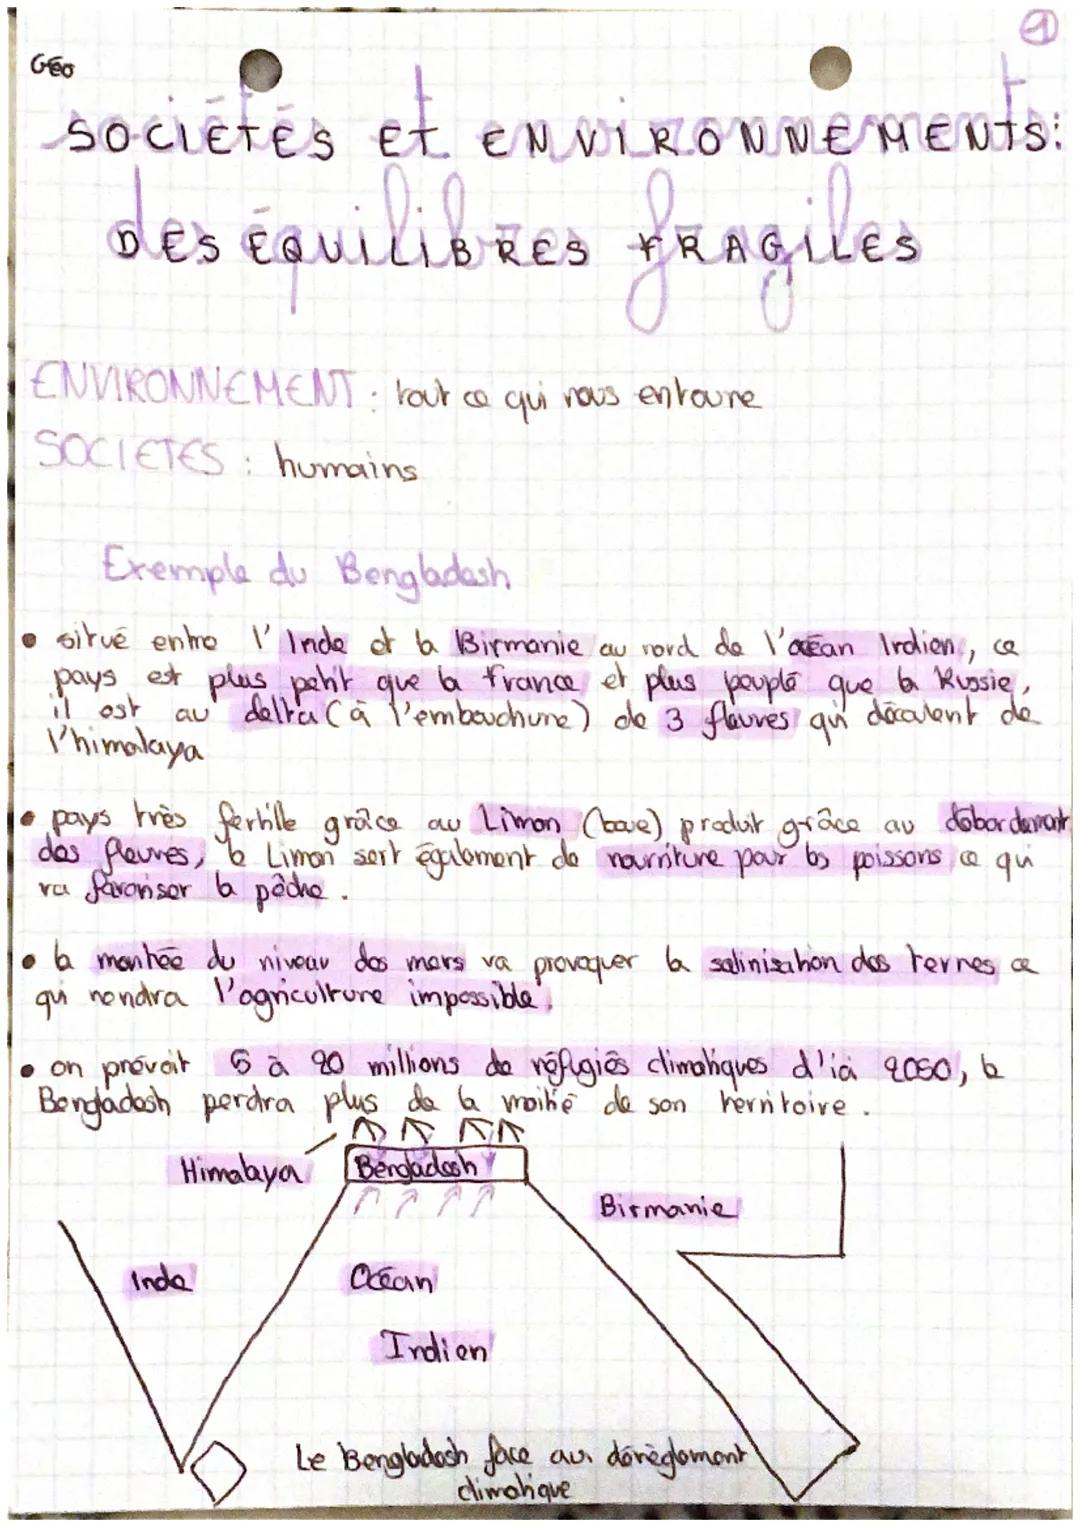 1
Géo
SOCIÉTÉS Et ENVIRONNEMENTS:
DES ÉQUILIBRES FRAGILES
ENVIRONNEMENT : tout ce qui nous entoure
SOCIETES : humains
Exemple du Bengladesh
• situé entre l'Inde et la Birmanie au nord de l'océan Indien, ce
pays est plus petit que la france et plus peuplé que la Russie,
il est au delta (à l'embouchure) de 3 fleuves qui découlent de
l'himalaya
• pays très fertille grâce au Limon (boue) produit grâce au débordement
des fleuves, le Limon sert également de nourriture pour les poissons ce qui
va favoriser la pêche.
• la montée du niveau des mers va provoquer la salinisation des terres ce
qui rendra l'agriculture impossible.
• on prévoit 5 à 20 millions de réfugiés climatiques d'ici 2050, le
Bengladesh perdra plus de la moitié de son territoire.
Himalaya
Bengladesh
Birmanie
Inde
Océan
Indien
Le Bengladesh face au dérèglement
climatique